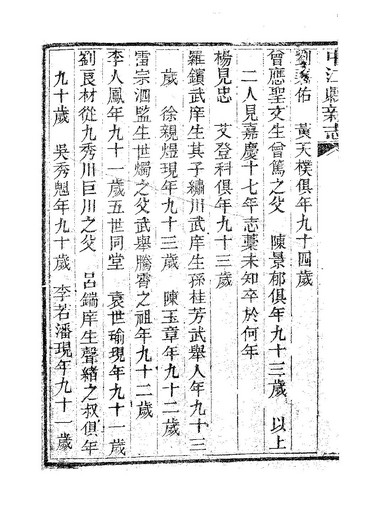 中江縣新志
劉秉佑 黃天樸俱年九十四歲
曾應聖文生曾篤之父 陳景郁俱年九十三歲 以上
二人見嘉慶十七年志藁未知卒於何年
楊見忠 艾登科俱年九十三歲
羅鑌武庠生其子繡川武庠生孫桂芳武舉人年九十三
歲 徐親煜現年九十三歲 陳玉章年九十二歲
雷宗泗監生世燭之父武舉騰霄之祖年九十二歲
李人鳳年九十一歲五世同堂 袁世瑜現年九十一歲
劉良材從九秀川巨川之父 呂鍴庠生聲緒之叔俱年
九十歲 吳秀魁年九十歲 李若潘現年九十一歲